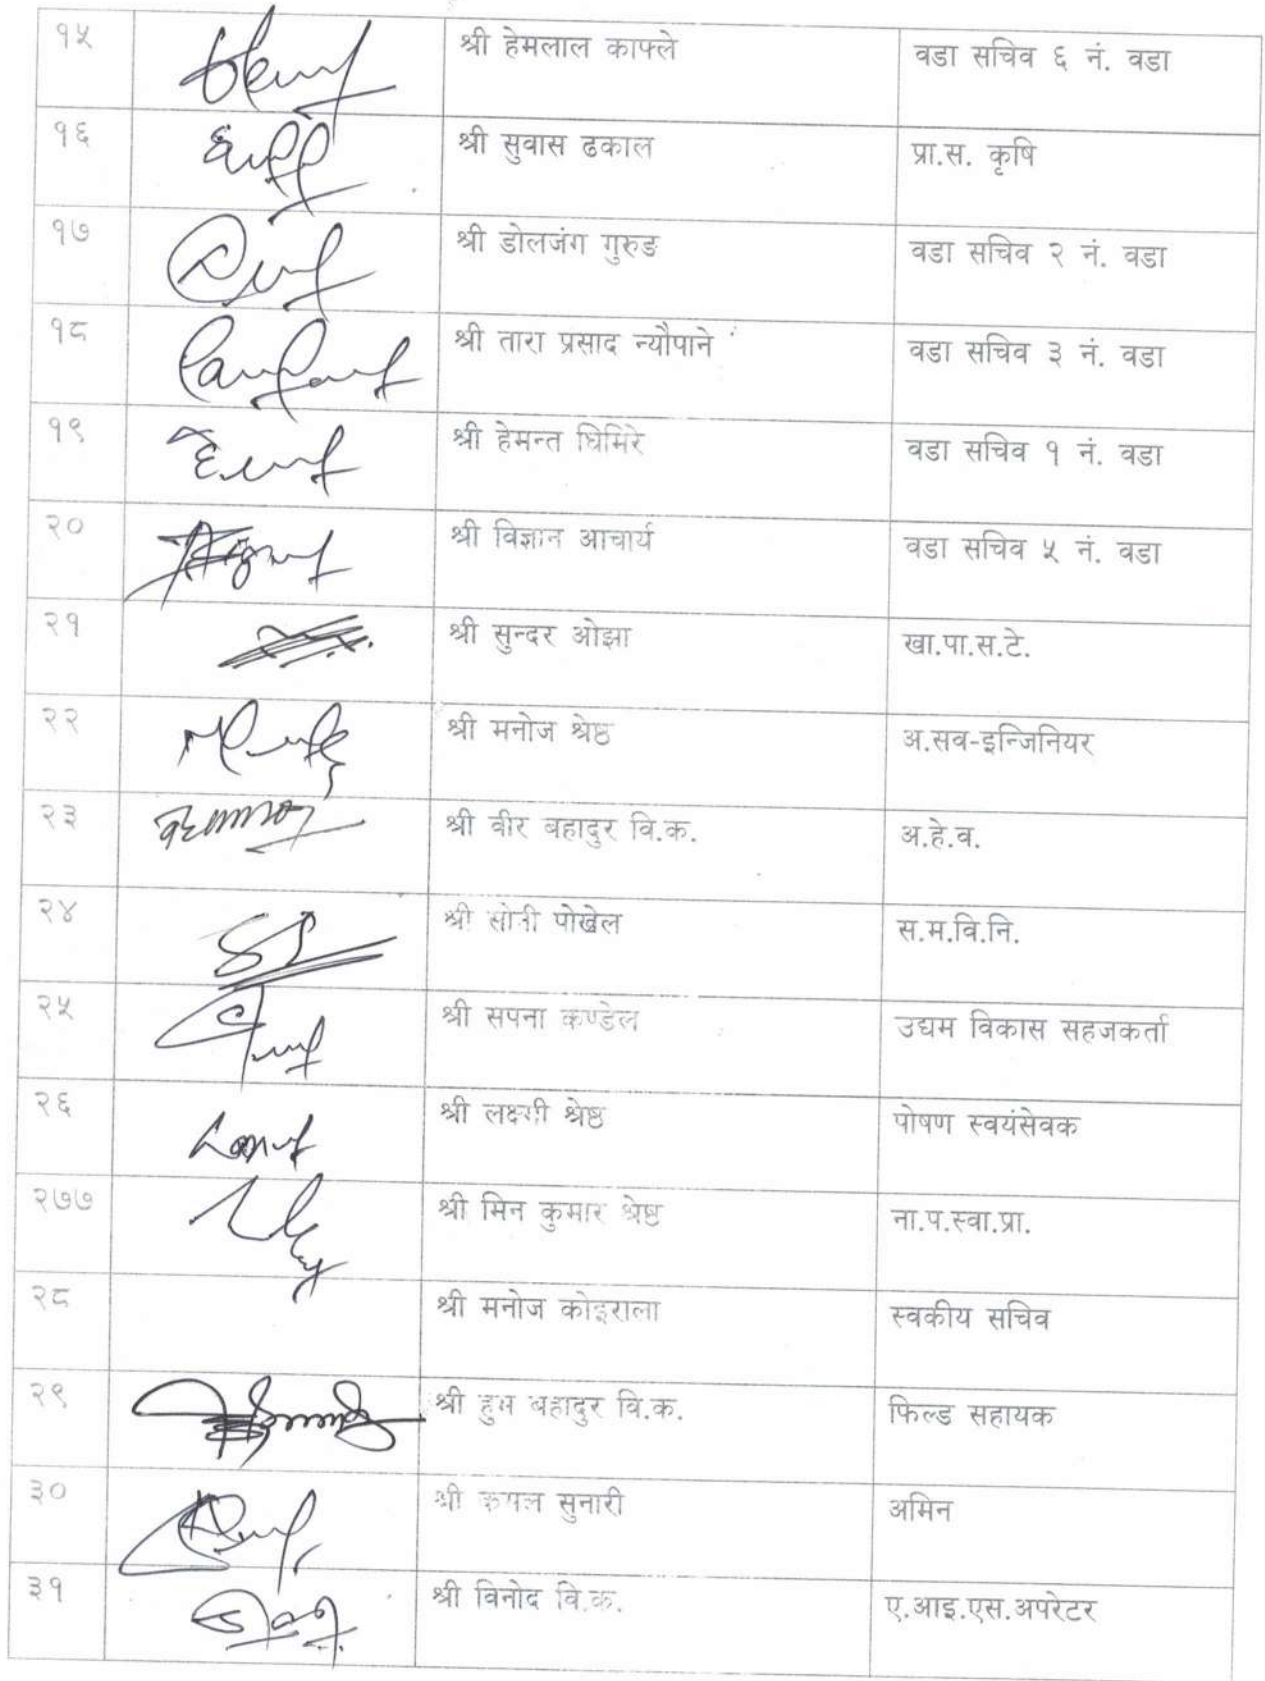 १५ श्री हेमलाल काफ्ले वडा सचिव ६ नं. वडा
१६ श्री सुवास ढकाल प्रा.स. कृषि
१७ श्री डोलजंग गुरुङ वडा सचिव २ नं. वडा
१८ श्री तारा प्रसाद न्यौपाने वडा सचिव ३ नं. वडा
१९ श्री हेमन्त घिमिरे वडा सचिव १ नं. वडा
२० श्री विज्ञान आचार्य वडा सचिव ५ नं. वडा
२१ श्री सुन्दर ओझा खा.पा.स.टे.
२२ श्री मनोज श्रेष्ठ अ.सव-इन्जिनियर
२३ श्री वीर बहादुर वि.क. अ.हे.व.
२४ श्री सोनी पोखेल स.म.वि.नि.
२५ श्री सपना कण्डेल उद्यम विकास सहजकर्ता
२६ श्री लक्ष्मी श्रेष्ठ पोषण स्वयंसेवक
२७७ श्री मिन कुमार श्रेष्ठ ना.प.स्वा.प्रा.
२८ श्री मनोज कोइराला स्वकीय सचिव
२९ श्री हुम बहादुर वि.क. फिल्ड सहायक
३० श्री कमल सुनारी अमिन
३१ श्री विनोद वि.क. ए.आइ.एस.अपरेटर